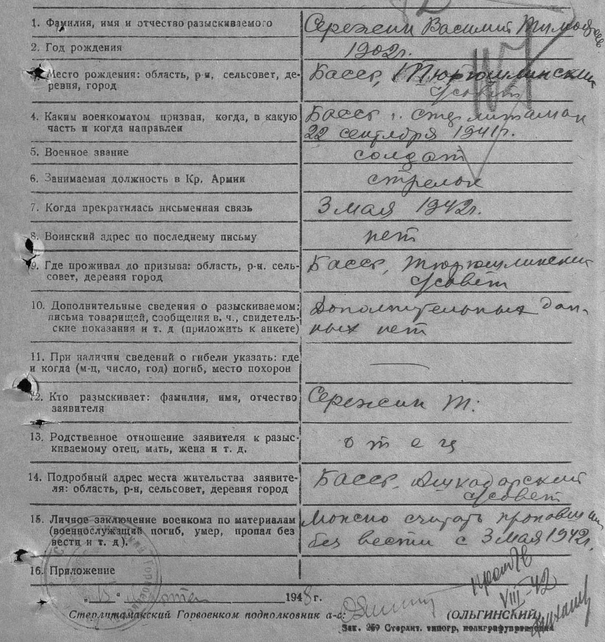 1. Фамилия, имя и отчество разыскиваемого
Сережкин Василий Тимофеев
2. Год рождения
1902 г.
3. Место рождения: область, р-н, сельсовет, де-
ревня, город
Басср, Тюрюшлинский
с/совет
4. Каким военкоматом призван, когда, в какую
часть и когда направлен
Басср г. Стерлитамак
22 сентября 1941 г.
5. Военное звание
солдат
6. Занимаемая должность в Кр. Армии
стрелок
7. Когда прекратилась письменная связь
3 мая 1942 г.
8. Воинский адрес по последнему письму
нет
9. Где проживал до призыва: область, р-н, сель-
совет, деревня город
Басср, Тюрюшлинский
с/совет
10. Дополнительные сведения о разыскиваемом:
письма товарищей, сообщения в. ч., свидетель-
ские показания и т. д (приложить к анкете)
Дополнительных дан-
ных нет
11. При наличии сведений о гибели указать: где
и когда (м-ц, число, год) погиб, место похорон
12. Кто разыскивает: фамилия, имя, отчество
заявителя
Сережкин Т.
13. Родственное отношение заявителя к разы-
скиваемому отец, мать, жена и т. д.
отец
14. Подробный адрес места жительства заявите-
ля: область, р-н, сельсовет, деревня город
Басср, Ашкадарский
с/совет
15. Личное заключение военкома по материалам
(военнослужащий погиб, умер, пропал без
вести и т. д.)
Можно считать пропавшим
без вести с 3 мая 1942 г.
16. Приложение
1948 г.
Стерлитамакский Горвоенком подполковник а-с:
(ОЛЬГИНСКИЙ)
VIII-42
Зак. 259 Стерлит. типогр.